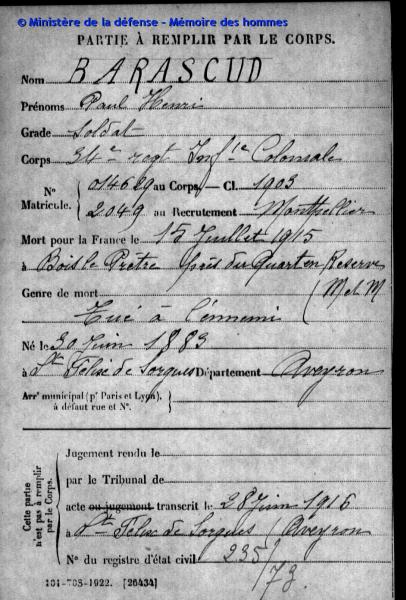 © Ministère de la défense - Mémoire des hommes
PARTIE À REMPLIR PAR LE CORPS.
Nom BARASCUD
Prénoms Paul Henri
Grade Soldat
Corps 34e regt Infie Coloniale
N° Matricule. 014629 au Corps. — Cl. 1903
2049 au Recrutement Montpellier
Mort pour la France le 15 Juillet 1915
à Bois le Prêtre près du Quart en Reserve
(M et M
Genre de mort
Tué à l'ennemi
Né le 30 Juin 1883
à St Félix de Sorgues Département Aveyron
Arrt municipal (pr Paris et Lyon), à défaut rue et N°.
Cette partie n'est pas à remplir par le Corps.
Jugement rendu le
par le Tribunal de
acte ou jugement transcrit le 28 Juin 1916
à St Félix de Sorgues (Aveyron
N° du registre d'état civil 235/73
101-708-1922. [26434]